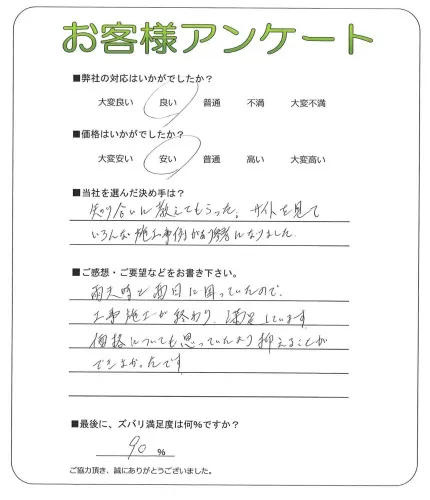 お客様アンケート
■弊社の対応はいかがでしたか？
大変良い 良い 普通 不満 大変不満
■価格はいかがでしたか？
大変安い 安い 普通 高い 大変高い
■当社を選んだ決め手は？
知り合いに教えてもらった。サイトを見て
いろんな施工事例があり参考になりました.
■ご感想・ご要望などをお書き下さい。
雨天時と西日に困っていたので、
工事施工が終わり、満足しています
価格についても思っていたより抑えることが
できよかったです
■最後に、ズバリ満足度は何％ですか？
90 ％
ご協力頂き、誠にありがとうございました。